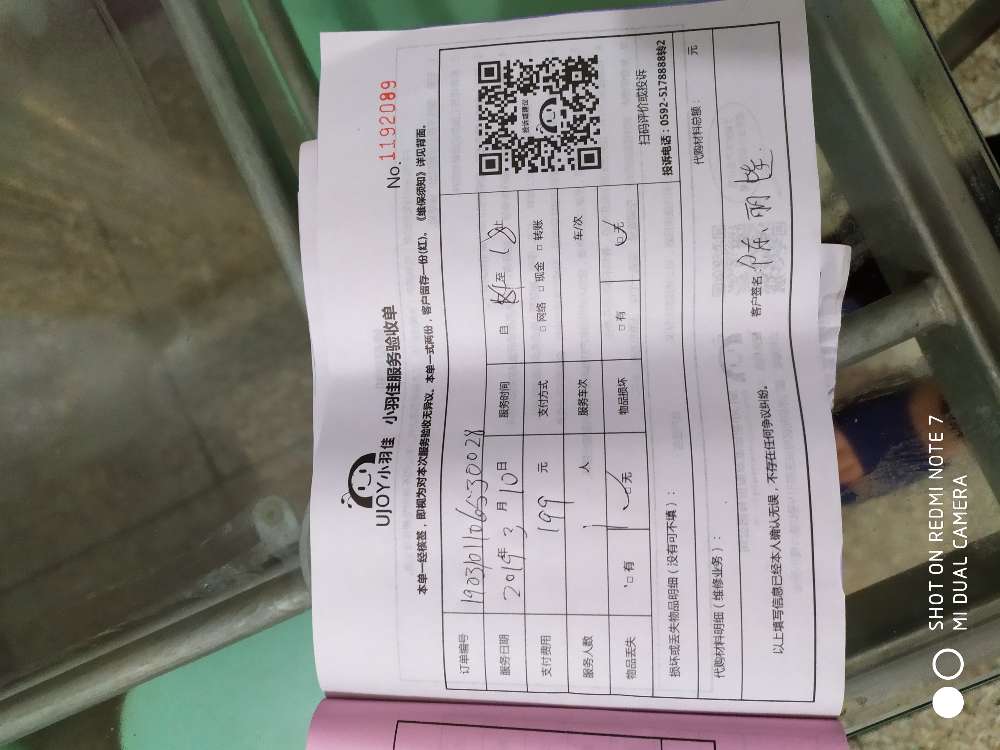 UJOY小羽佳 小羽佳服务验收单
No. 1192089
本单一经核签，即视为对本次服务验收无异议。本单一式两份，客户留存一份(红)。《维保须知》详见背面。
订单编号
服务日期 2019年 3 月 10 日 服务时间 自 至 18 止
支付费用 199 元 支付方式 □ 网络 □ 现金 □ 转账
服务人数 1 人 服务车次 车/次
物品丢失 □ 有 □ 无 物品损坏 □ 有 □ 无
投诉或建议
扫码评价或投诉
投诉电话：0592-5178888转2
损坏或丢失物品明细（没有可不填）：
代购材料明细（维修业务）： 代购材料总额： 元
以上填写信息已经本人确认无误，不存在任何争议纠纷。 客户签名：
SHOT ON REDMI NOTE 7
MI DUAL CAMERA